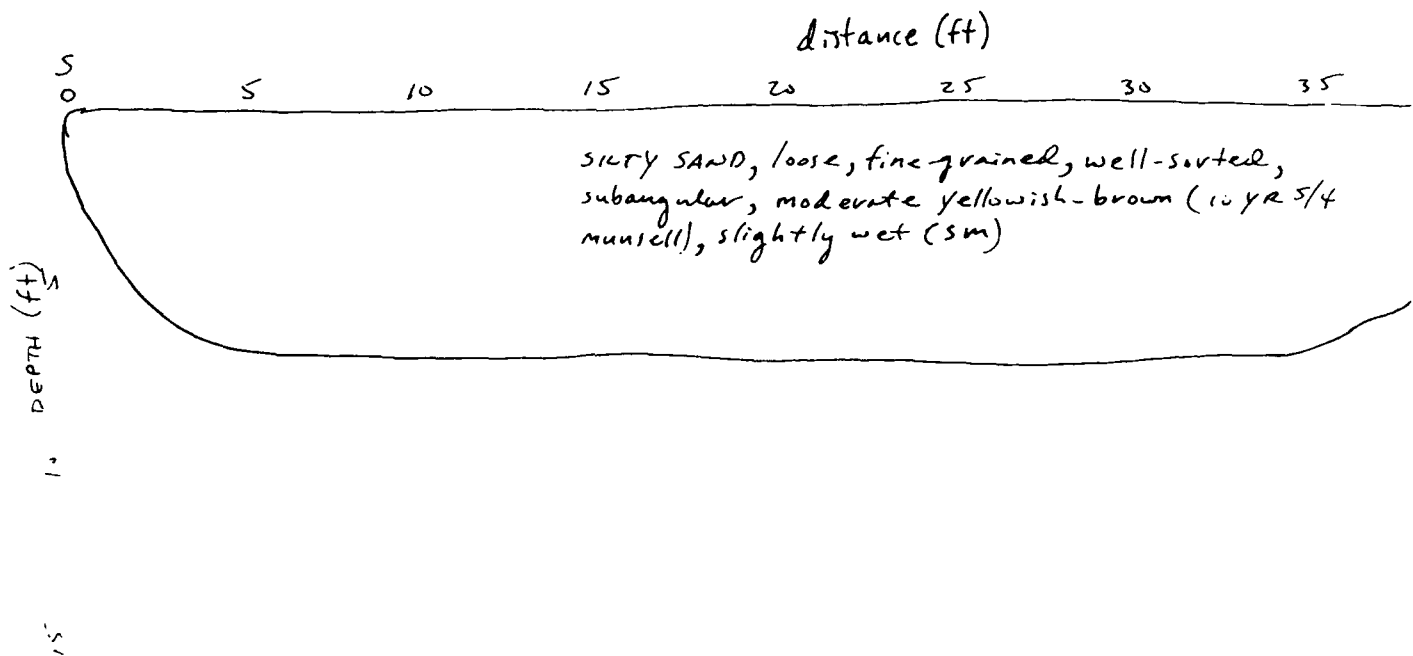 distance (ft)
S
0 5 10 15 20 25 30 35
SILTY SAND, loose, fine-grained, well-sorted,
subangular, moderate yellowish-brown (10 YR 5/4
munsell), slightly wet (SM)
DEPTH (ft)
5
10
15